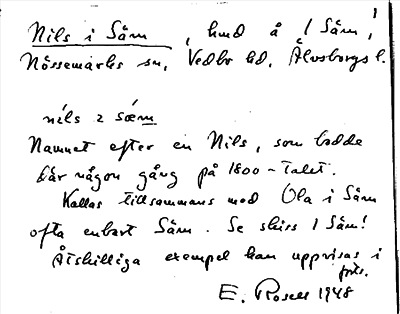 1
Nils i Säm , hmd å 1 Säm,
Nössemarks sn, Vedbo hd, Älvsborgs l.
nils i sæm
Namnet efter en Nils, som bodde
här någon gång på 1800-talet.
Kallas tillsammans med Ola i Säm
ofta enbart Säm. Se skiss 1 Säm!
Åtskilliga exempel kan uppvisas i
forts.
E. Rosell 1948